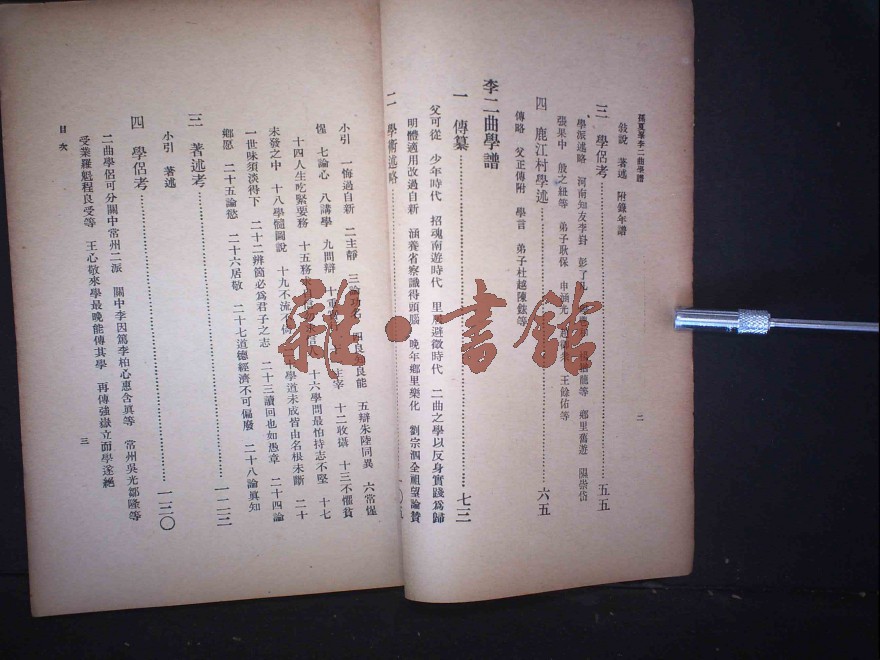 孫夏峯李二曲學譜
二
敍說 著述 附錄年譜
三 學侶考⋯⋯五五
學派述略 河南知友李𡊮 彭了凡 等 鄉里舊遊 隰崇岱
張果中 殷之紐等 弟子耿保 申涵光 王餘佑等
四 鹿江村學述⋯⋯六五
傳略 父正傳附 學言 弟子杜越陳鋐等
李二曲學譜
一 傳纂⋯⋯七三
父可從 少年時代 招魂南遊時代 里 避徵時代 二曲之學以反身實踐爲歸
明體適用改過自新 涵養省察識得頭腦 晚年鄉里樂化 劉宗泗全祖望論贊
二 學術述略⋯⋯一〇五
小引 一悔過自新 二主靜 三論功名 四良知良能 五辯朱陸同異 六常惺
惺 七論心 八講學 九問辯 十重 主宰 十二收攝 十三不懼貧
十四人生吃緊要務 十五務 十六學問最怕持志不堅 十七
未發之中 十八學髓圖說 十九不流不倚 二十學道未成皆由名根未斷 二十
一世味須淡得下 二十二辨箇必爲君子之志 二十三讀回也如愚章 二十四論
鄉愿 二十五論慾 二十六居敬 二十七道德經濟不可偏廢 二十八論眞知
三 著述考⋯⋯一二三
小引 著述
四 學侶考⋯⋯一三〇
二曲學侶可分關中常州二派 關中李因篤李柏心惠含眞等 常州吳光鄒隆等
受業羅魁程良受等 王心敬來學最晚能傳其學 再傳強嶽立而學遂絕
目次
三
雜·書館